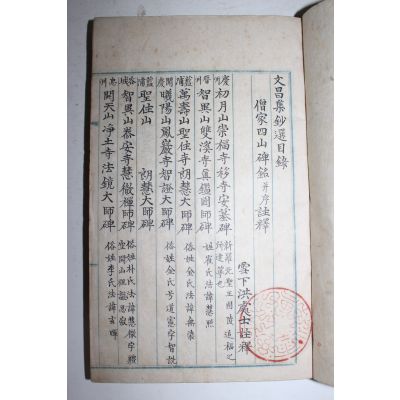 文昌集鈔選目錄
僧家四山碑銘 并序註釋
雪下洪慶士註釋
慶州 初月山崇福寺移寺安墓碑
晉州 智異山雙溪寺眞鑑國師碑 俗姓崔氏法諱慧照
藍浦 萬壽山聖住寺朗慧大師碑 俗姓金氏法諱無染
聞慶 曦陽山鳳巖寺智證大師碑 俗姓金氏号道憲字智詵
藍浦 聖住山 朗慧大師碑
谷城 智異山泰安寺慧徹禪師碑 俗姓朴氏法諱慧徹字體空
忠州 開天山淨土寺法鏡大師碑 俗姓李氏法諱玄暉